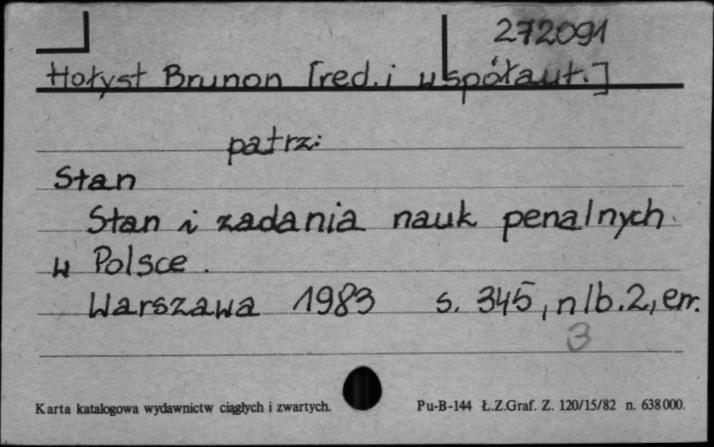 272091
Hołyst Brunon [red. i współaut.]
patrz:
Stan
Stan i zadania nauk penalnych
w Polsce.
Warszawa 1983 s. 345, nlb. 2, err.
3
Karta katalogowa wydawnictw ciągłych i zwartych. Pu-B-144 Ł.Z.Graf. Z. 120/15/82 n. 638000.